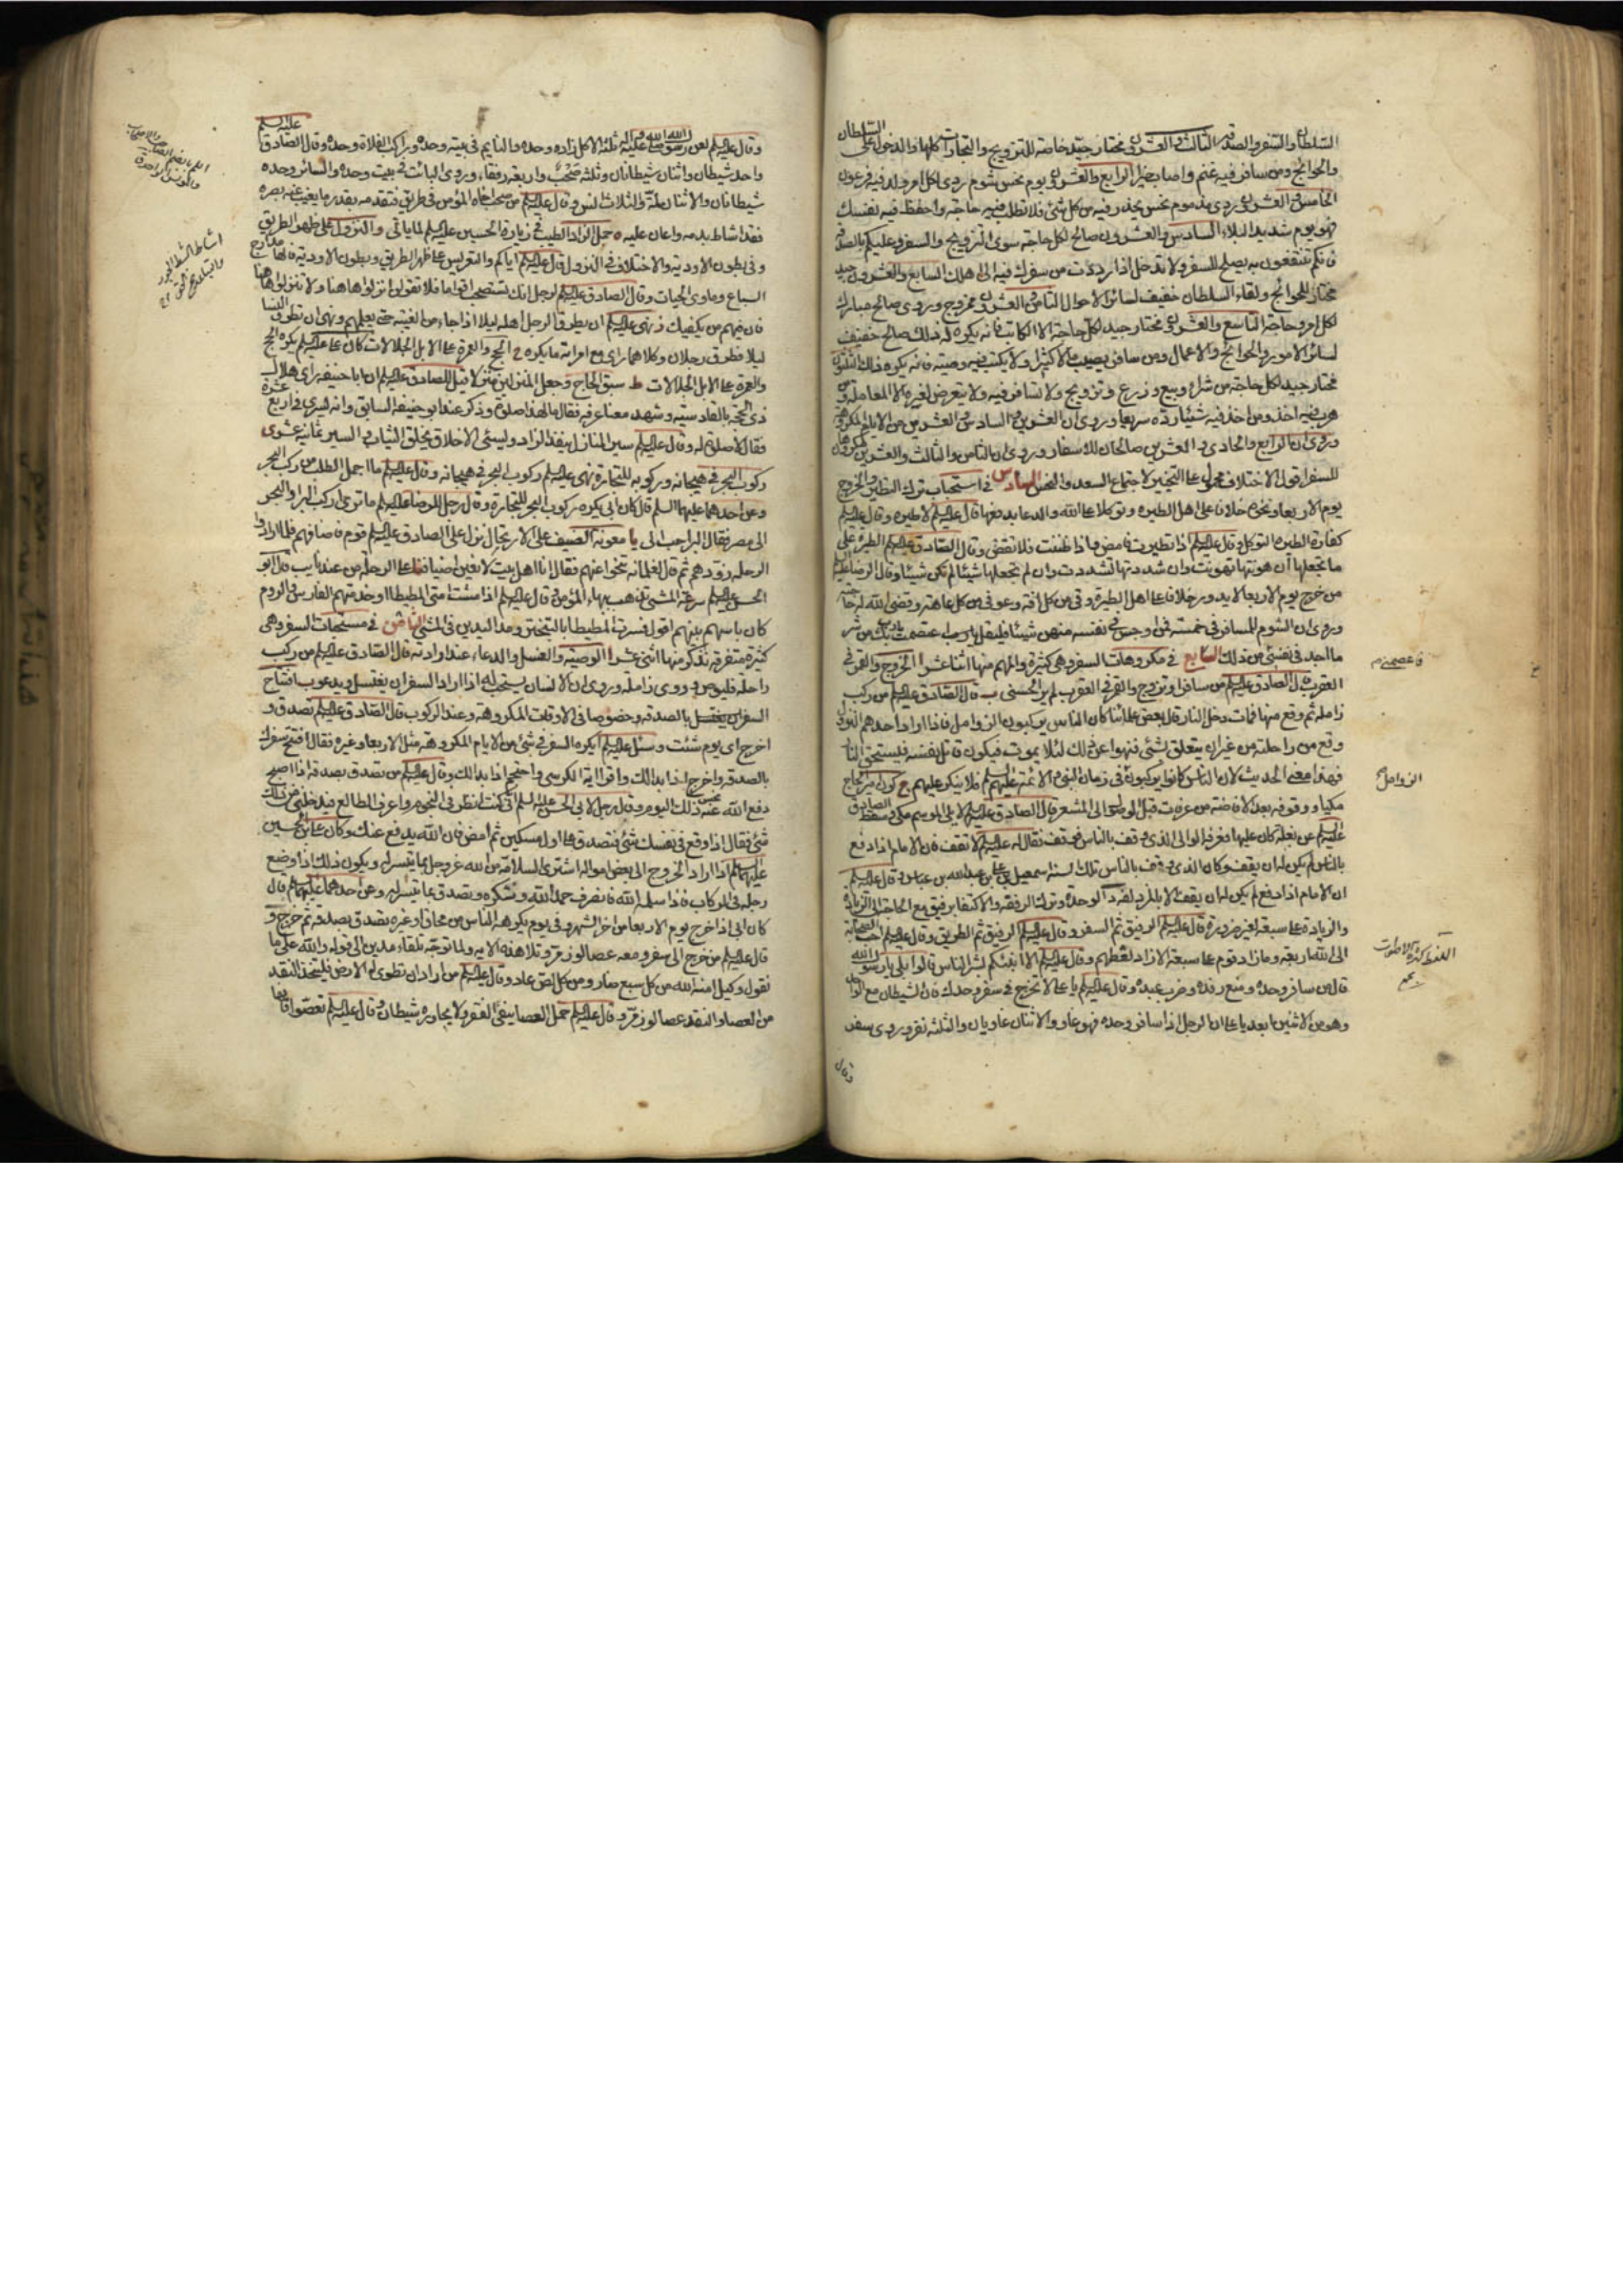 السلطان والسفر والصدقه الثالث والعشرون مختار جيّد خاصة للتزويج والتجارات كلها والدخول على السلطان
والحوائج ومن سافر فيه غنم واصاب خيرا الرابع والعشرون يوم نحس شوم روى لكل امر ولد فيه فرعون
الخامس والعشرون ردى مذموم نحس يحذر فيه من كل شئ فلا تطلب فيه حاجة واحفظ فيه نفسك
فهو يوم شديد البلاء السادس والعشرون صالح لكل حاجة سوى التزويج والسفر وعليكم بالصدقه
فانكم تنتفعون به يصلح للسفر ولا تدخل اذا رددت من سفرك فيه الى اهلك السابع والعشرون جيد
مختار للحوائج ولقاء السلطان خفيف لسائر الاحوال الثامن والعشرون ممزوج وروى صالح مبارك
لكل امر وحاجة التاسع والعشرون مختار جيد لكل حاجة الا الكاتب فانه يكره له ذلك صالح خفيف
لسائر الامور والحوائج والاعمال ومن سافر يصيب مالا كثيرا ولا يكتب فيه وصية فانه يكره ذلك الثلثون
مختار جيد لكل حاجة من شراء وبيع وزرع وتزويج ولا تسافر فيه ولا يتعرض لغيره الا المعاملة ومن
هرب فيه اخذ ومن اخذ فيه شيئا رده سريعا وروى ان العشرين والسادس والعشرين من الايام المكروهة
وروى ان الرابع والحادى والعشرين صالحان للاسفار وروى ان الثامن والثالث والعشرين مكروهان
للسفر اقول الاختلاف محمول على التخيير لاجتماع السعد والنحس السادس فى استحباب ترك التطير والخروج
يوم الاربعا ونحوه خلافا على اهل الطيره وتوكلا على الله والدعا بدفعها قال عليه السلم لا طيره وقال عليه السلم
كفارة الطيره التوكل وقال عليه السلم اذا تطيرت فامض واذا ظننت فلا تقض وقال الصادق عليه السلم الطيرة على
ما تجعلها ان هونتها تهونت وان شددتها تشددت وان لم تجعلها شيئا لم تكن شيئا وقال الرضا عليه السلم
من خرج يوم الاربعا لا يدور خلافا على اهل الطيرة وقى من كل افة وعوفى من كل عاهة وقضى الله له حاجته
وروى ان الشوم للمسافر فى خمسة فمن اوجس فى نفسه منهن شيئا فليقل يا رب اعتصمت بك من شر
ما اجد فى نفسى من ذلك السابع فى مكروهات السفر وهى كثيرة والمهم منها اثنا عشر ا الخروج والقمر فى
العقرب قال الصادق عليه السلم من سافر او تزوج والقمر فى العقرب لم ير الحسنى ب قال الصادق عليه السلم من ركب
زاملة ثم وقع منها فمات دخل النار قال بعض علمائنا كان الناس يركبون الزوامل فاذا اراد احدهم النزول
وقع من راحلته من غير ان يتعلق بشئ فنهوا عن ذلك لئلا يموت فيكون قاتل نفسه فيستحق النار
فهذا معنى الحديث لان الناس كانوا يركبون فى زمان النبى والائمة عليهم السلم فلا ينكر عليهم ج كون امير الحاج
مكيا ووقوفه بعد الافاضة من عرفات قبل الوصول الى المشعر قال الصادق عليه السلم لا يلى الموسم مكى وسقط الصادق
عليه السلم عن بغلة كان عليها فعرفه الوالى الذى وقف بالناس فوقف فقال له عليه السلم لا تقف فان الامام اذا دفع
بالناس لم يكن له ان يقف وكان الذى وقف بالناس تلك السنة اسمعيل بن على بن عبدالله بن عباس وقال عليه السلم
ان الامام اذا دفع لم يكن له ان يقف الا بالمزدلفه د الوحدة وترك الرفقه والاكتفا برفيق مع الحاجة الى الزيادة
والزيادة على سبعة لغير ضرورة قال عليه السلم الرفيق ثم السفر وقال عليه السلم الرفيق ثم الطريق وقال عليه السلم احب الصحابة
الى الله اربعة وما زاد قوم على سبعة الا زاد لغطهم وقال عليه السلم الا انبئكم بشر الناس قالوا بلى يا رسول الله
قال من سافر وحده ومنع رفده وضرب عبده وقال عليه السلم يا على لا تخرج فى سفر وحدك فان الشيطان مع الواحد
وهو من الاثنين ابعد يا على ان الرجل اذا سافر وحده فهو غاو والاثنان غاويان والثلثة نفر وروى سفر
وقال
فاعصمنى م
الزوامل
وقال عليه السلم لعن رسول الله صلى الله عليه واله ثلثة الاكل زاده وحده والنايم فى بيته وحده وراكب الفلاة وحده وقال الصادق عليه السلم
واحد شيطان واثنان شيطانان وثلثة صحب واربعة رفقاء وروى البائت فى بيت وحده والسائر وحده
شيطانان والاثنان لمة والثلاث انس وقال عليه السلم من صحب اخاه المؤمن فى طريق فتقدمه بقدر ما يغيب عنه بصره
فقد اشاط بدمه واعان عليه ه حمل الزاد الطيب فى زيارة الحسين عليه السلم لما ياتى و النزول على ظهر الطريق
وفى بطون الاودية والاختلاف فى النزول قال عليه السلم اياكم والتعريس على ظهر الطريق وبطون الاودية فانها مدارج
السباع وماوى الحيات وقال الصادق عليه السلم لرجل انك تستصحب اقواما فلا تقولن انزلوا هاهنا ولا تنزلوا هاهنا
فان فيهم من يكفيك ز نهى عليه السلم ان يطرق الرجل اهله ليلا اذا جاء من الغيبة حتى يعلمهم ونهى ان تطرق النسا
ليلا فطرق رجلان وكلاهما راى مع امراته ما يكره ح الحج والعمرة على الابل الجلالات كان على عليه السلم يكره الحج
والعمرة على الابل الجلالات ط سبق الحاج وجعل المنزلين منزلا قيل للصادق عليه السلم ان ابا حنيفه راى هلال
ذى الحجة بالقادسية وشهد معنا عرفه فقال ما لهذا صلوة وذكر عنده ابو حنيفه السابق وانه ليسرى فى اربع عشرة
فقال لا صلوة له وقال عليه السلم سير المنازل ينفد الزاد ويسئ الاخلاق ويخلق الثياب والسير ثمانية عشر ى
ركوب البحر فى هيجانه وركوبه للتجارة نهى عليه السلم ركوب البحر فى هيجانه وقال عليه السلم ما اجمل الطلب من ركب البحر
وعن احدهما عليهما السلم قال كان ابى يكره ركوب البحر للتجارة وقال رجل للرضا عليه السلم ما ترى اركب البر او البحر
الى مصر فقال البر احب الى يا معونة الضيف على الارتحال نزل على الصادق عليه السلم قوم فاضافهم فلما ارادوا
الرحلة زودهم ثم قال لغلمانه تنحوا عنهم فقال انا اهل بيت لا نعين اضيافنا على الرحلة من عندنا يب قال ابو
الحسن عليه السلم سرعة المشى تذهب ببهاء المؤمن وقال عليه السلم اذا مشت امتى المطيطا وخدمتهم الفارس والروم
كان باسهم بينهم اقول فسرت المطيطا بالتبختر ومد اليدين فى المشى الثامن فى مستحبات السفر وهى
كثيرة متفرقة نذكر منها اثنى عشر ا الوصية والغسل والدعاء عند ارادته قال الصادق عليه السلم من ركب
راحلة فليوص وروى زاملة وروى ان الانسان يستحب له اذا اراد السفر ان يغتسل ويدعو ب افتتاح
السفر بالصدقة وخصوصا فى الاوقات المكروهة وعند الركوب قال الصادق عليه السلم تصدق و
اخرج اى يوم شئت وسئل عليه السلم ايكره السفر فى شئ من الايام المكروهة مثل الاربعا وغيره فقال افتتح سفرك
بالصدقه واخرج اذا بدا لك واقرا اية الكرسى واحتجم اذا بدا لك وقال عليه السلم من تصدق بصدقة اذا اصبح
دفع الله عنه نحس ذلك اليوم وقال رجل لابى الحسن عليه السلم انى كنت انظر فى النجوم واعرف الطالع فيدخلنى من ذلك
شئ فقال اذا وقع فى نفسك شئ فتصدق على اول مسكين ثم امض فان الله يدفع عنك وكان على بن الحسين
عليهما السلم اذا اراد الخروج الى بعض امواله اشترى السلامة من الله عز وجل بما يتيسر له ويكون ذلك اذا وضع
رجله فى الركاب فاذا سلمه الله فانصرف حمد الله وشكره وتصدق بما تيسر له وعن احدهما عليهما السلم قال
كان ابى اذا خرج يوم الاربعا من اخر الشهر وفى يوم يكرهه الناس من محاق او غيره تصدق بصدقة ثم خرج و
قال عليه السلم من خرج الى سفر ومعه عصا لوز مر وتلا هذه الاية ولما توجه تلقاء مدين الى قوله والله على ما
نقول وكيل امنه الله من كل سبع ضار ومن كل لص عاد وقال عليه السلم من اراد ان تطوى له الارض فليتخذ النقد
من العصا والنقد عصا لوز مر وقال عليه السلم حمل العصا ينفى الفقر ولا يجاوره شيطان وقال عليه السلم تعصوا فانها